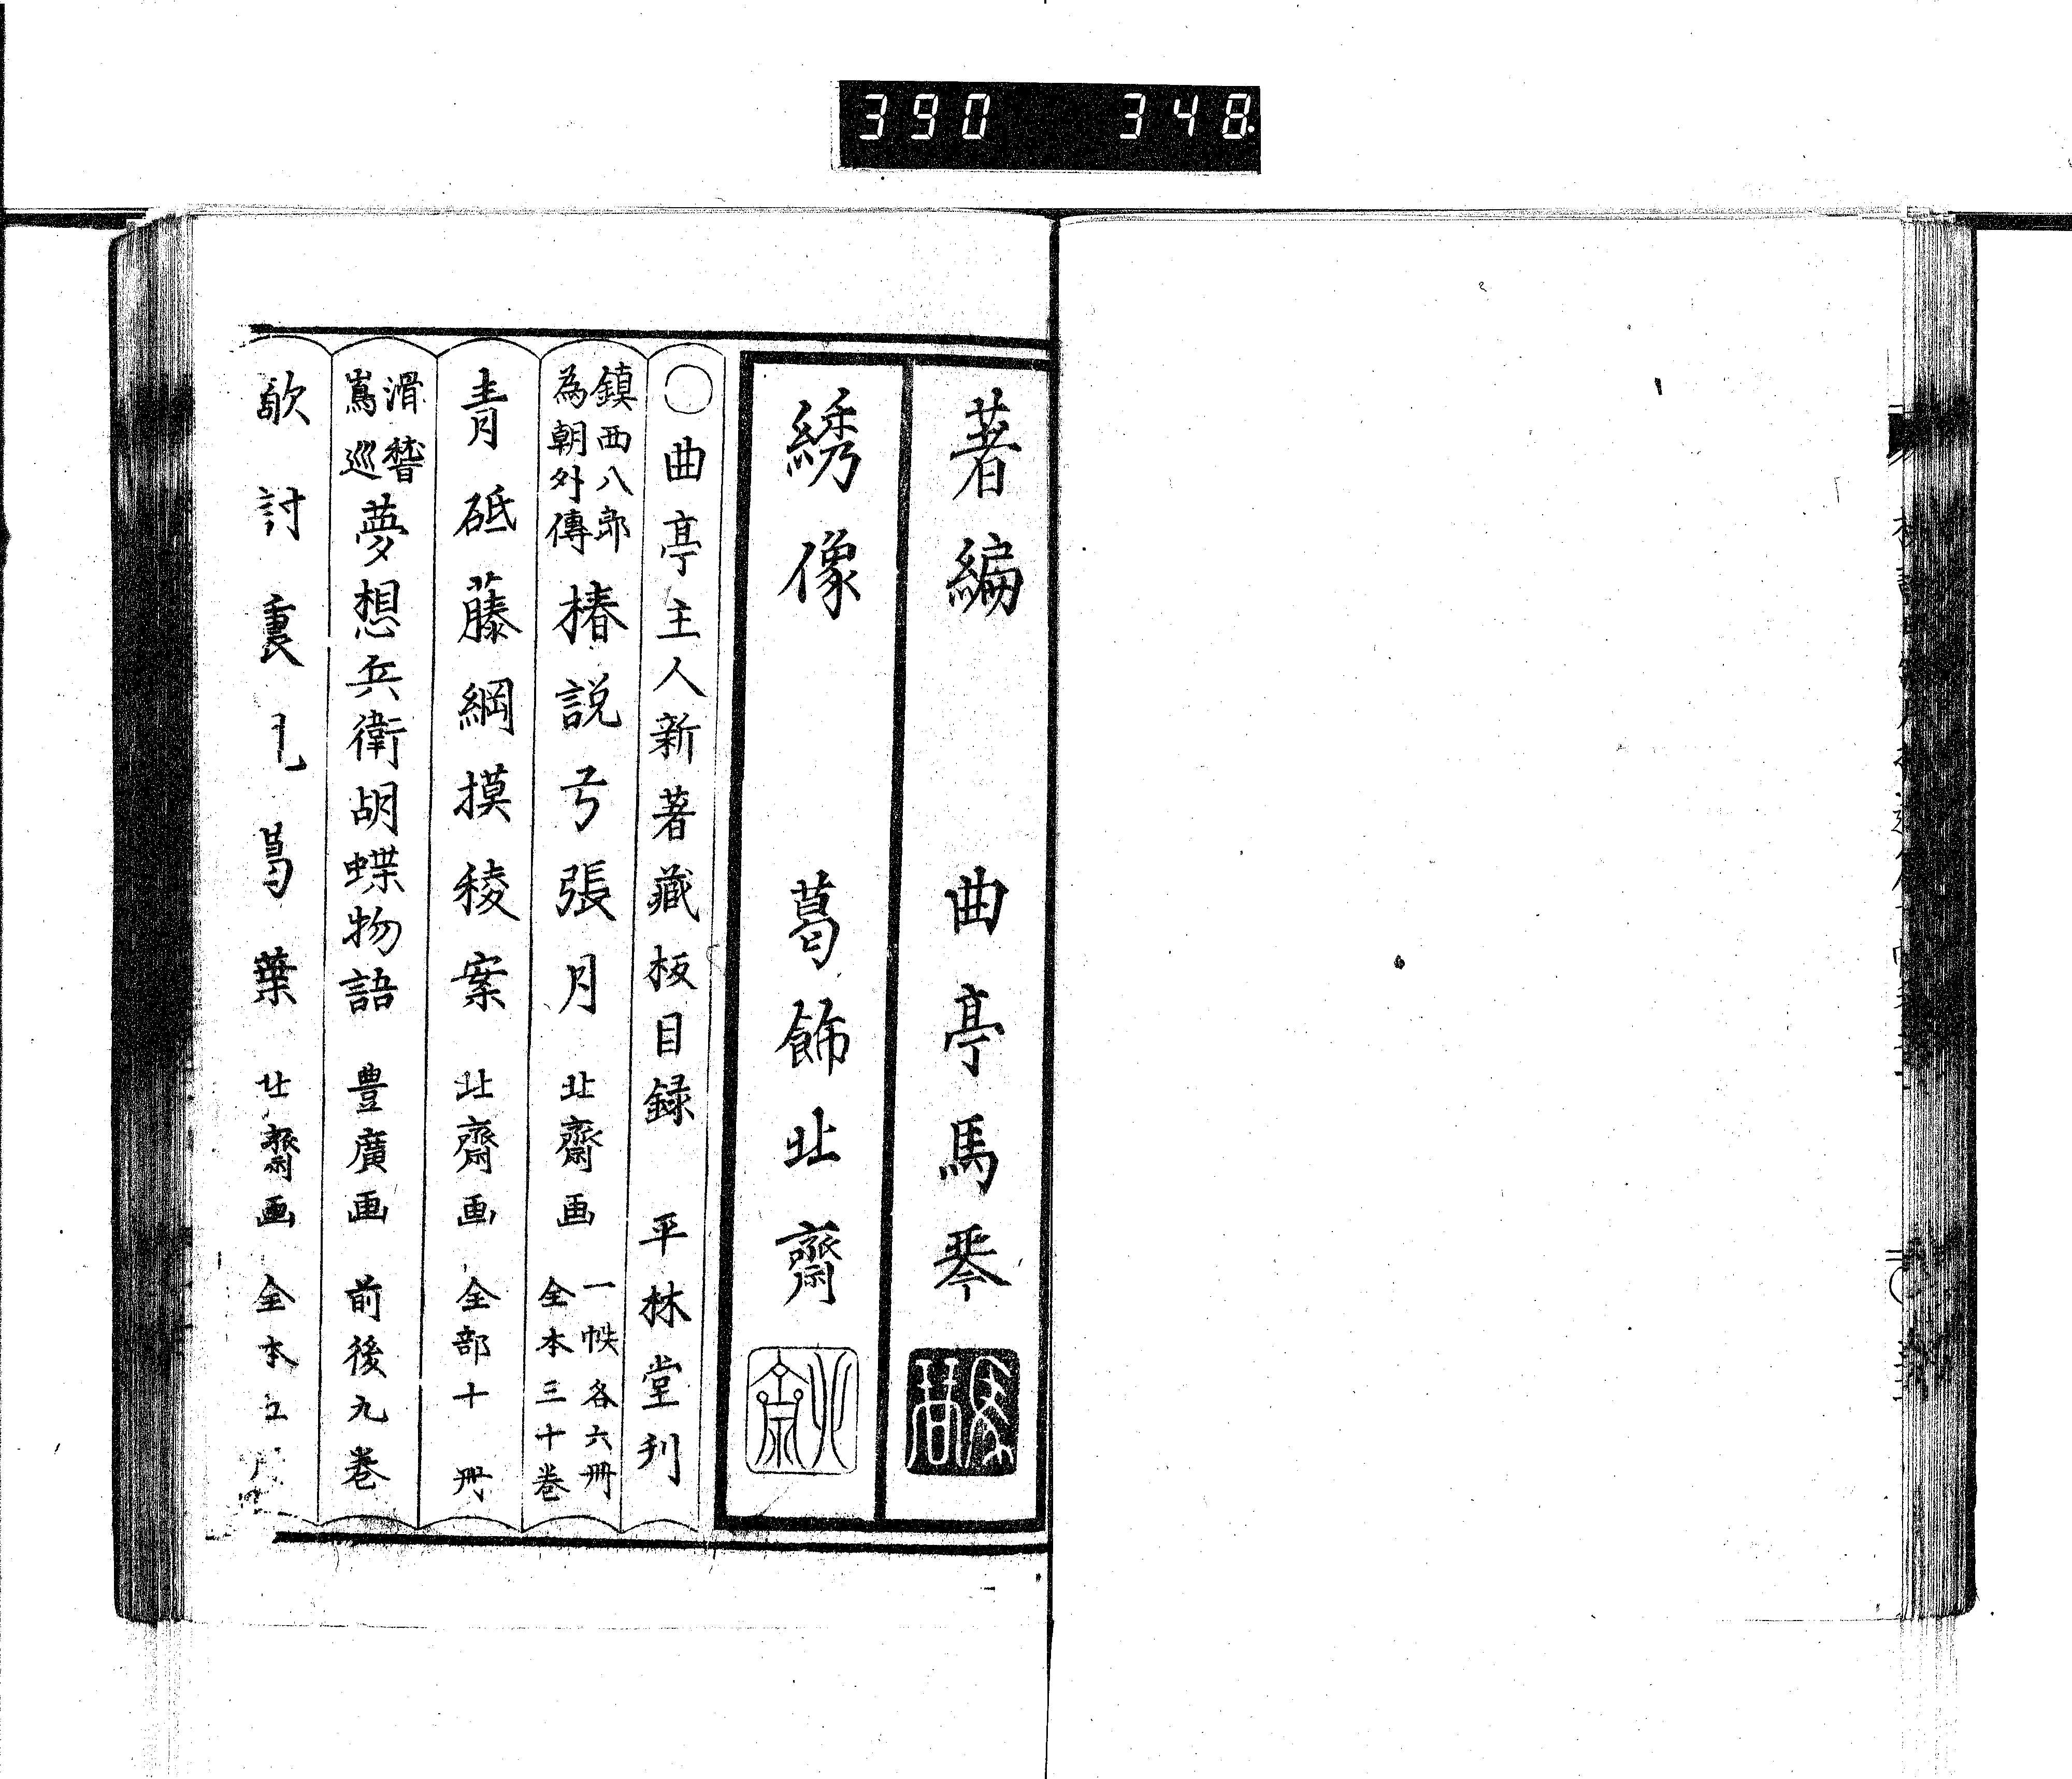 390 348
著編 曲亭馬琴
綉像 葛飾北齋
○曲亭主人新著藏板目録 平林堂刊
鎮西八郎
為朝外傳
椿説弓張月 北齋画
一帙各六冊
全本三十巻
青砥藤綱摸稜案 北齋画 全部十冊
滑稽
嶌巡
夢想兵衛胡蝶物語 豊廣画 前後九巻
敵討裏見葛葉 北齋画 全本五